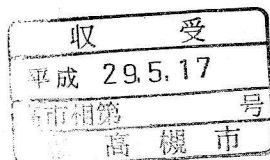 収受
平成 29.5.17
市相第 号
高槻市